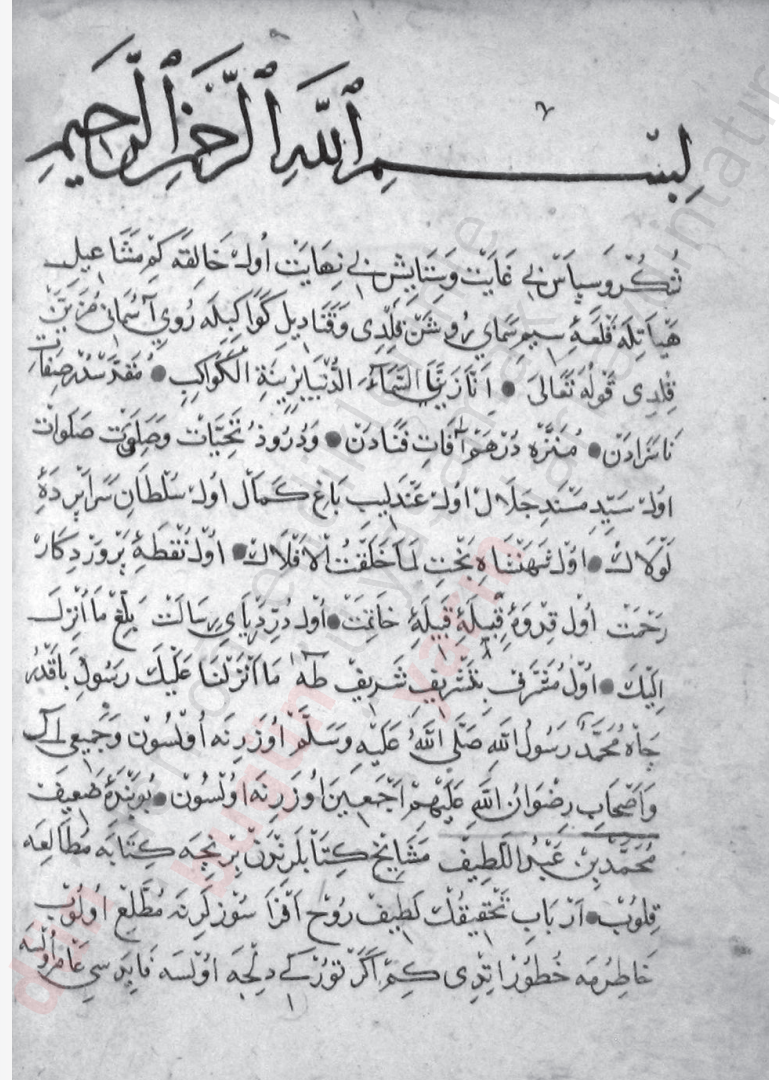 بِسْمِ ٱللّٰهِ ٱلرَّحْمٰنِ ٱلرَّحِيمِ
شُكْر و سپاس بى غايت وستايش بى نهايت اول خالقه كم مشاعيل
هيأتله قلعهٔ سيم سماي روشن قلدى وقناديل كواكبله روي آسمانى مزين
قلدى قوله تعالى • انا زينا السماء الدنيا بزينة الكواكب • مقدسدر صفات
ناسزادن • منزه در هم آفات فنادن • ودرود تحيات وصلوت صلوات
اول سيد مسند جلال اول عندليب باغ كمال اول سلطان سراپردهٔ
لولاك • اول شهنشاه تخت لما خلقت الافلاك • اول نقطهٔ پروردكار
رحمت اول قدوهٔ قبيلهٔ قبيلهٔ خاتمت • اول در درياى رسالت بلغ ما انزل
اليك • اول مشرف بتشريف شريف طه ما انزلنا عليك رسول باقدر
جاه محمد رسول الله صلى الله عليه وسلم اوزرنه اولسون وجميع آل
واصحاب رضوان الله عليهم اجمعين اوزرنه اولسون • بو بندهٔ ضعيف
محمد بن عبد اللطيف مشايخ كتابلرندن برنچه كتابه مطالعه
قلوب • ارباب تحقيقك لطيف روح افزا سوزلرنه مطلع اولوب
خاطرمه خطور اتدى كم اكر تورك دلجه اولسه فايده سى عام اولسه